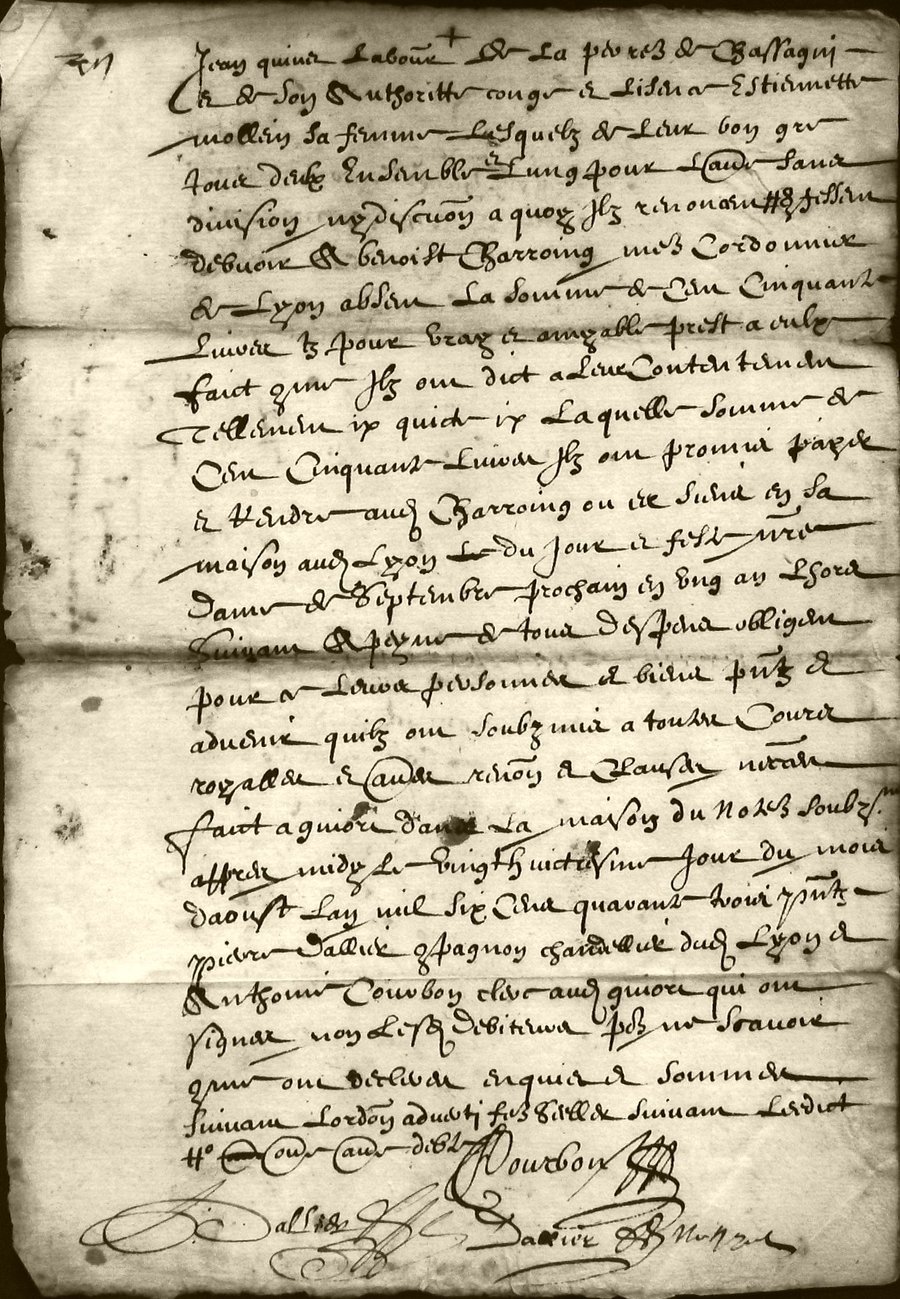 Jean quiner Labour + de La perrez de Chassagni
Et de son Authoritte conge et Lisence Estiennette
mollein sa femme Lesquelz de Leur bon gre
tous deux Ensemble et Lung pour Laue sans
division ny discuon a quoy Ilz renoncent # confessent
debvoir A benoist Charroing mez Cordonnier
de Lyon absent La somme de Cent Cinquante
Livres tz pour vray et amyable prest a eulx
faict comme Ilz ont dict a Leur Contentement
Tellement ix quicte ix Laquelle somme de
Cent Cinquante Livres Ilz ont promis payer
et Rendre aud Charroing ou es siens en sa
maison aud Lyon du Jour et feste nre
dame de Septembre prochain en ung an Lhors
Suivant A peyne de tous despens obligent
pour ce Leurs personnes et biens pntz et
advenir quilz ont soubzmis a toutes Cours
royalles et aues renon et Clauses necres
faict a guiors dans La maison du Notez soubz.ne
appres midy Le vingt huictiesme Jour du mois
daoust Lan mil six Cens quarante trois pntz
pierre dallier compagnon chandellier dud Lyon et
Anthoine Courbon clerc aud guiors qui ont
signes non Lesd debiteurs pour ne scavoir
comme ont declere enquis et sommes
suivant Lordon adverti fez Seeller suivant Ledict
# aue debte Courbon
Dallier Dallier